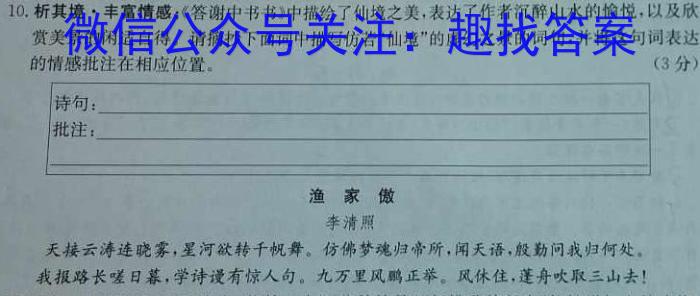 10. 析其境·丰富情感 《答谢中书书》中描绘了仙境之美,表达了作者沉醉山水的愉悦,以及欣
赏美
微信公众号关注:趣找答案
的情感批注在相应位置。 (3分)
诗句:
批注:
渔家傲
李清照
天接云涛连晓雾,星河欲转千帆舞。仿佛梦魂归帝所,闻天语,殷勤问我归何处。
我报路长嗟日暮,学诗谩有惊人句。九万里风鹏正举。风休住,蓬舟吹取三山去!